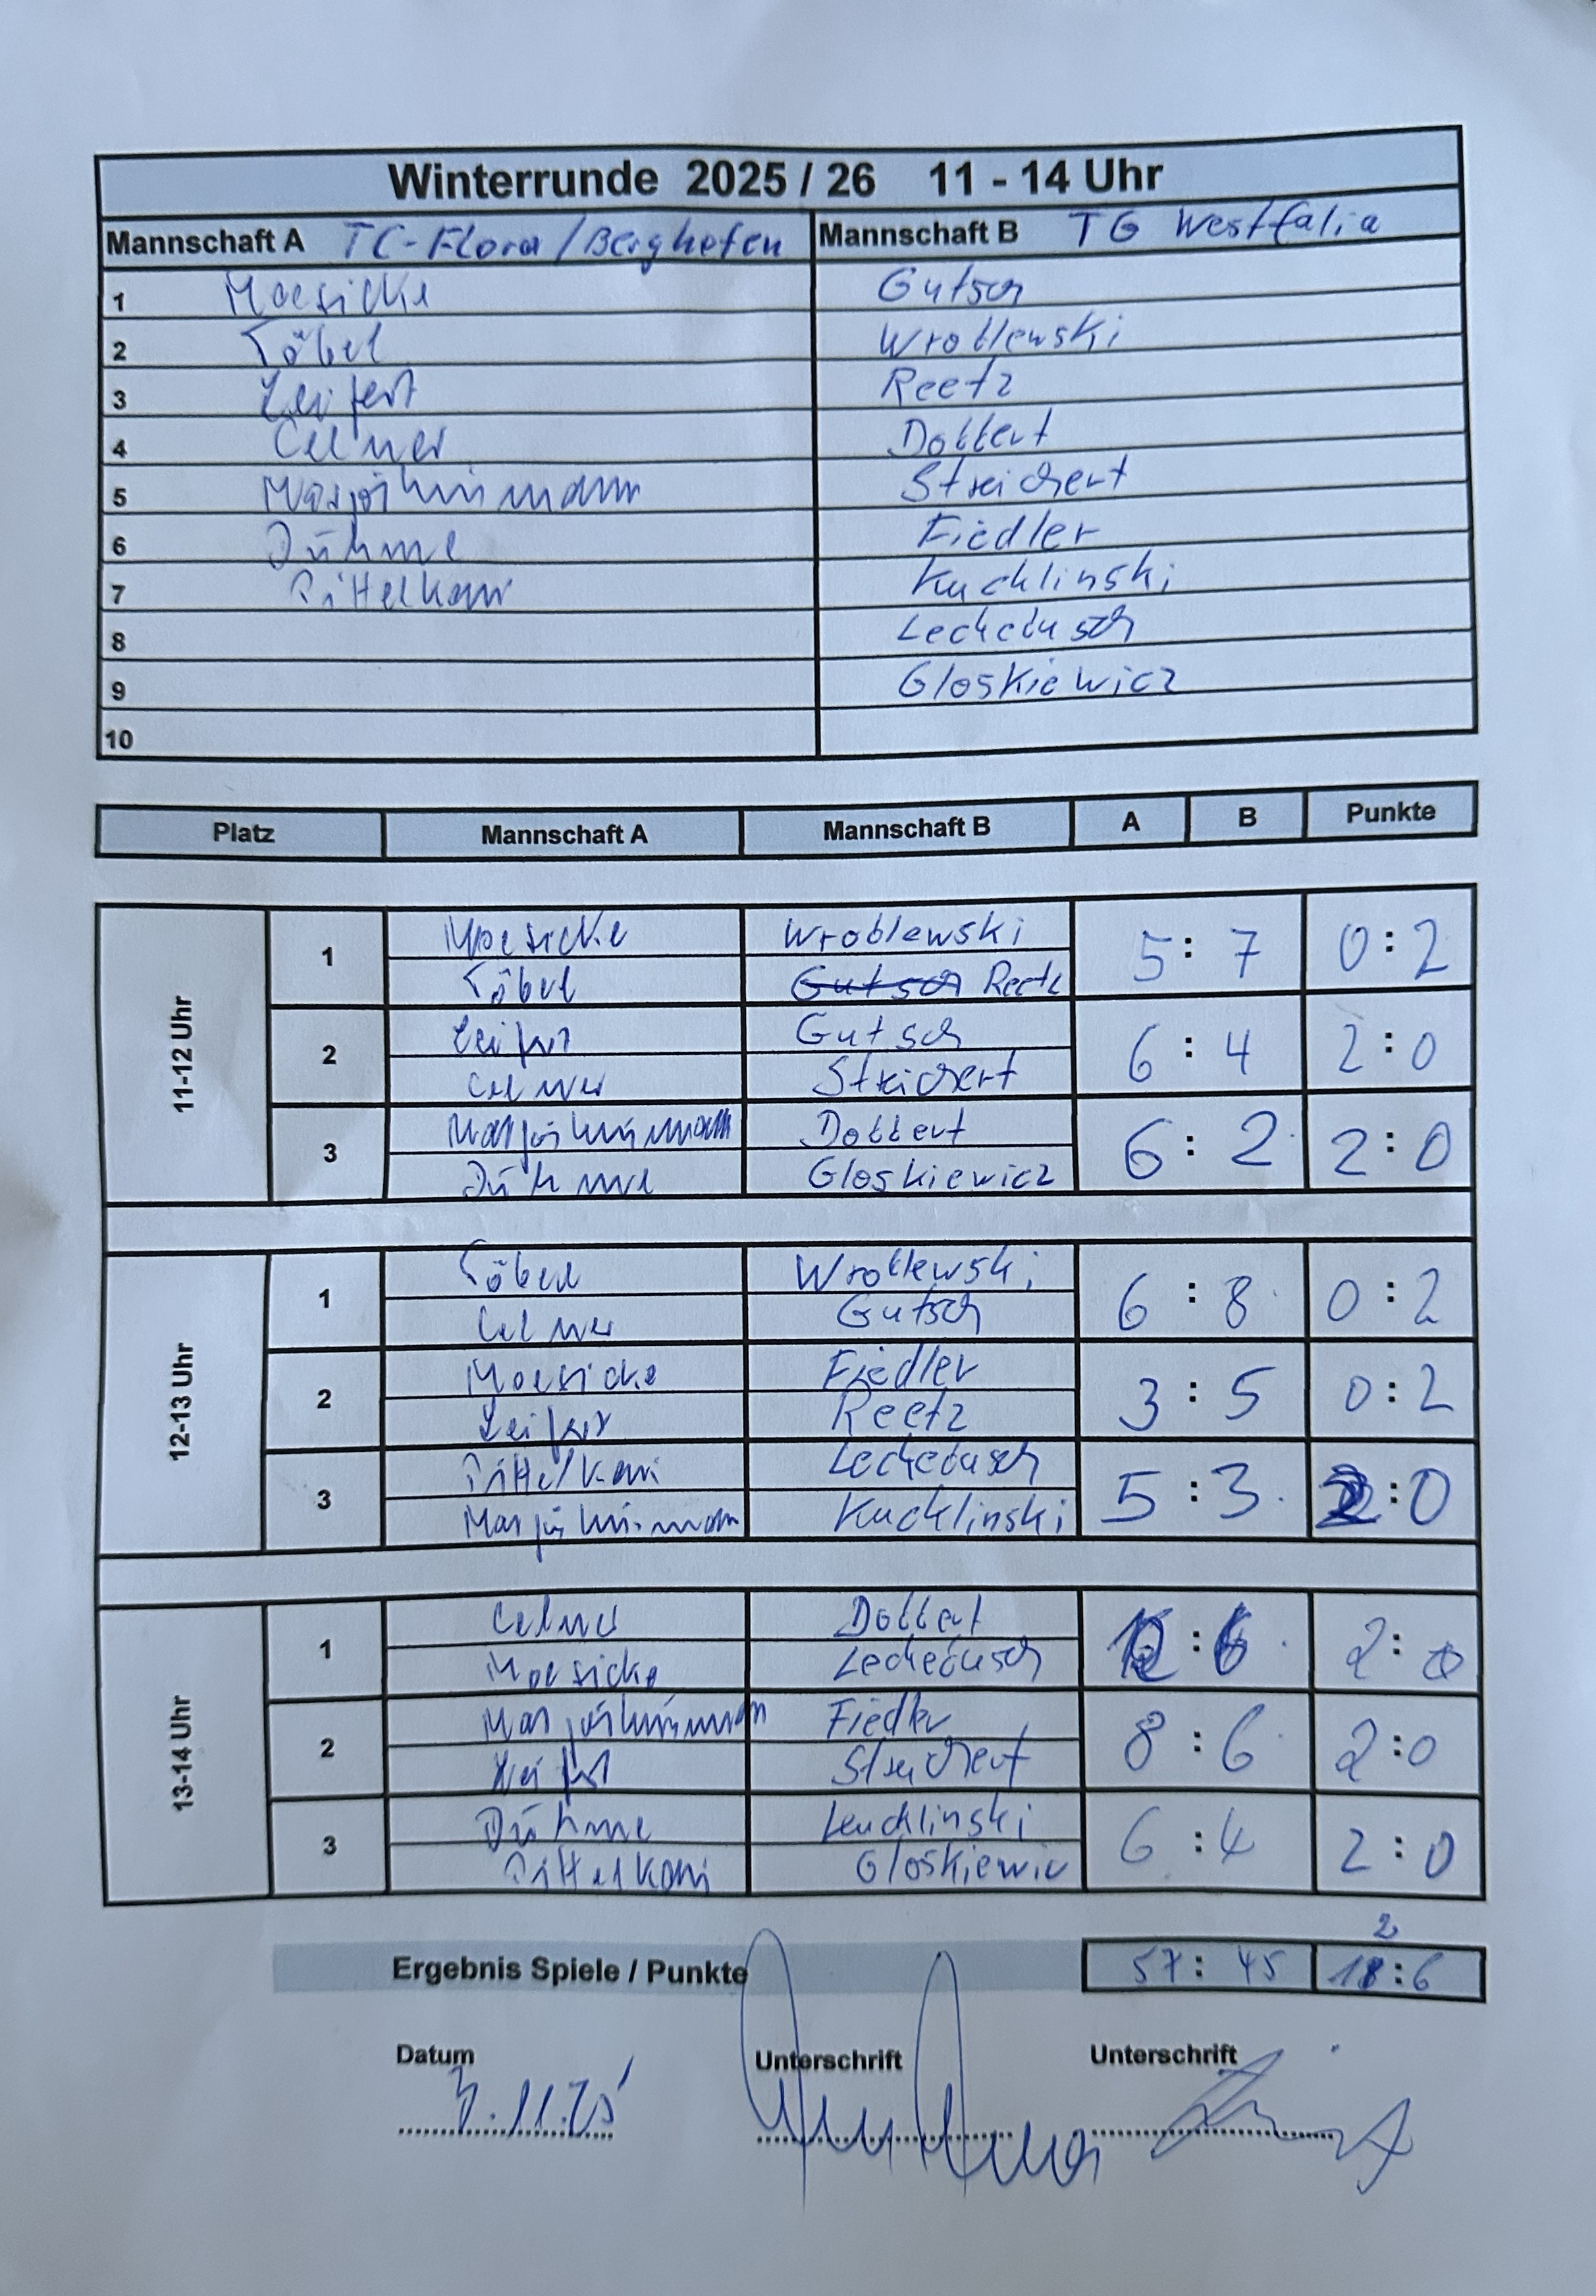 Winterrunde 2025 / 26 11 - 14 Uhr
Mannschaft A TC-Flora/Berghofen Mannschaft B TG Westfalia
1 Moesicke Gutsch
2 Töbel Wroblewski
3 Leifert Reetz
4 Celner Dobbert
5 Streichert
6 Dühme Fiedler
7 Pittelkow Kucklinski
8 Lechebusch
9 Gloskiewicz
10
Platz Mannschaft A Mannschaft B A B Punkte
11-12 Uhr
1 Moesicke Wroblewski 5 : 7 0 : 2
Töbel Gutsch Reetz
2 Leifert Gutsch 6 : 4 2 : 0
Celner Streichert
3 Dobbert 6 : 2 2 : 0
Dühme Gloskiewicz
12-13 Uhr
1 Töbel Wroblewski 6 : 8 0 : 2
Celner Gutsch
2 Moesicke Fiedler 3 : 5 0 : 2
Leifert Reetz
3 Pittelkow Lechebusch 5 : 3 2 : 0
Kucklinski
13-14 Uhr
1 Celner Dobbert : 6 2 : 0
Moesicke Lechebusch
2 Fiedler 8 : 6 2 : 0
Leifert Streichert
3 Dühme Kucklinski 6 : 4 2 : 0
Pittelkow Gloskiewic
2
Ergebnis Spiele / Punkte 57 : 45 : 6
Datum Unterschrift Unterschrift
.11.25